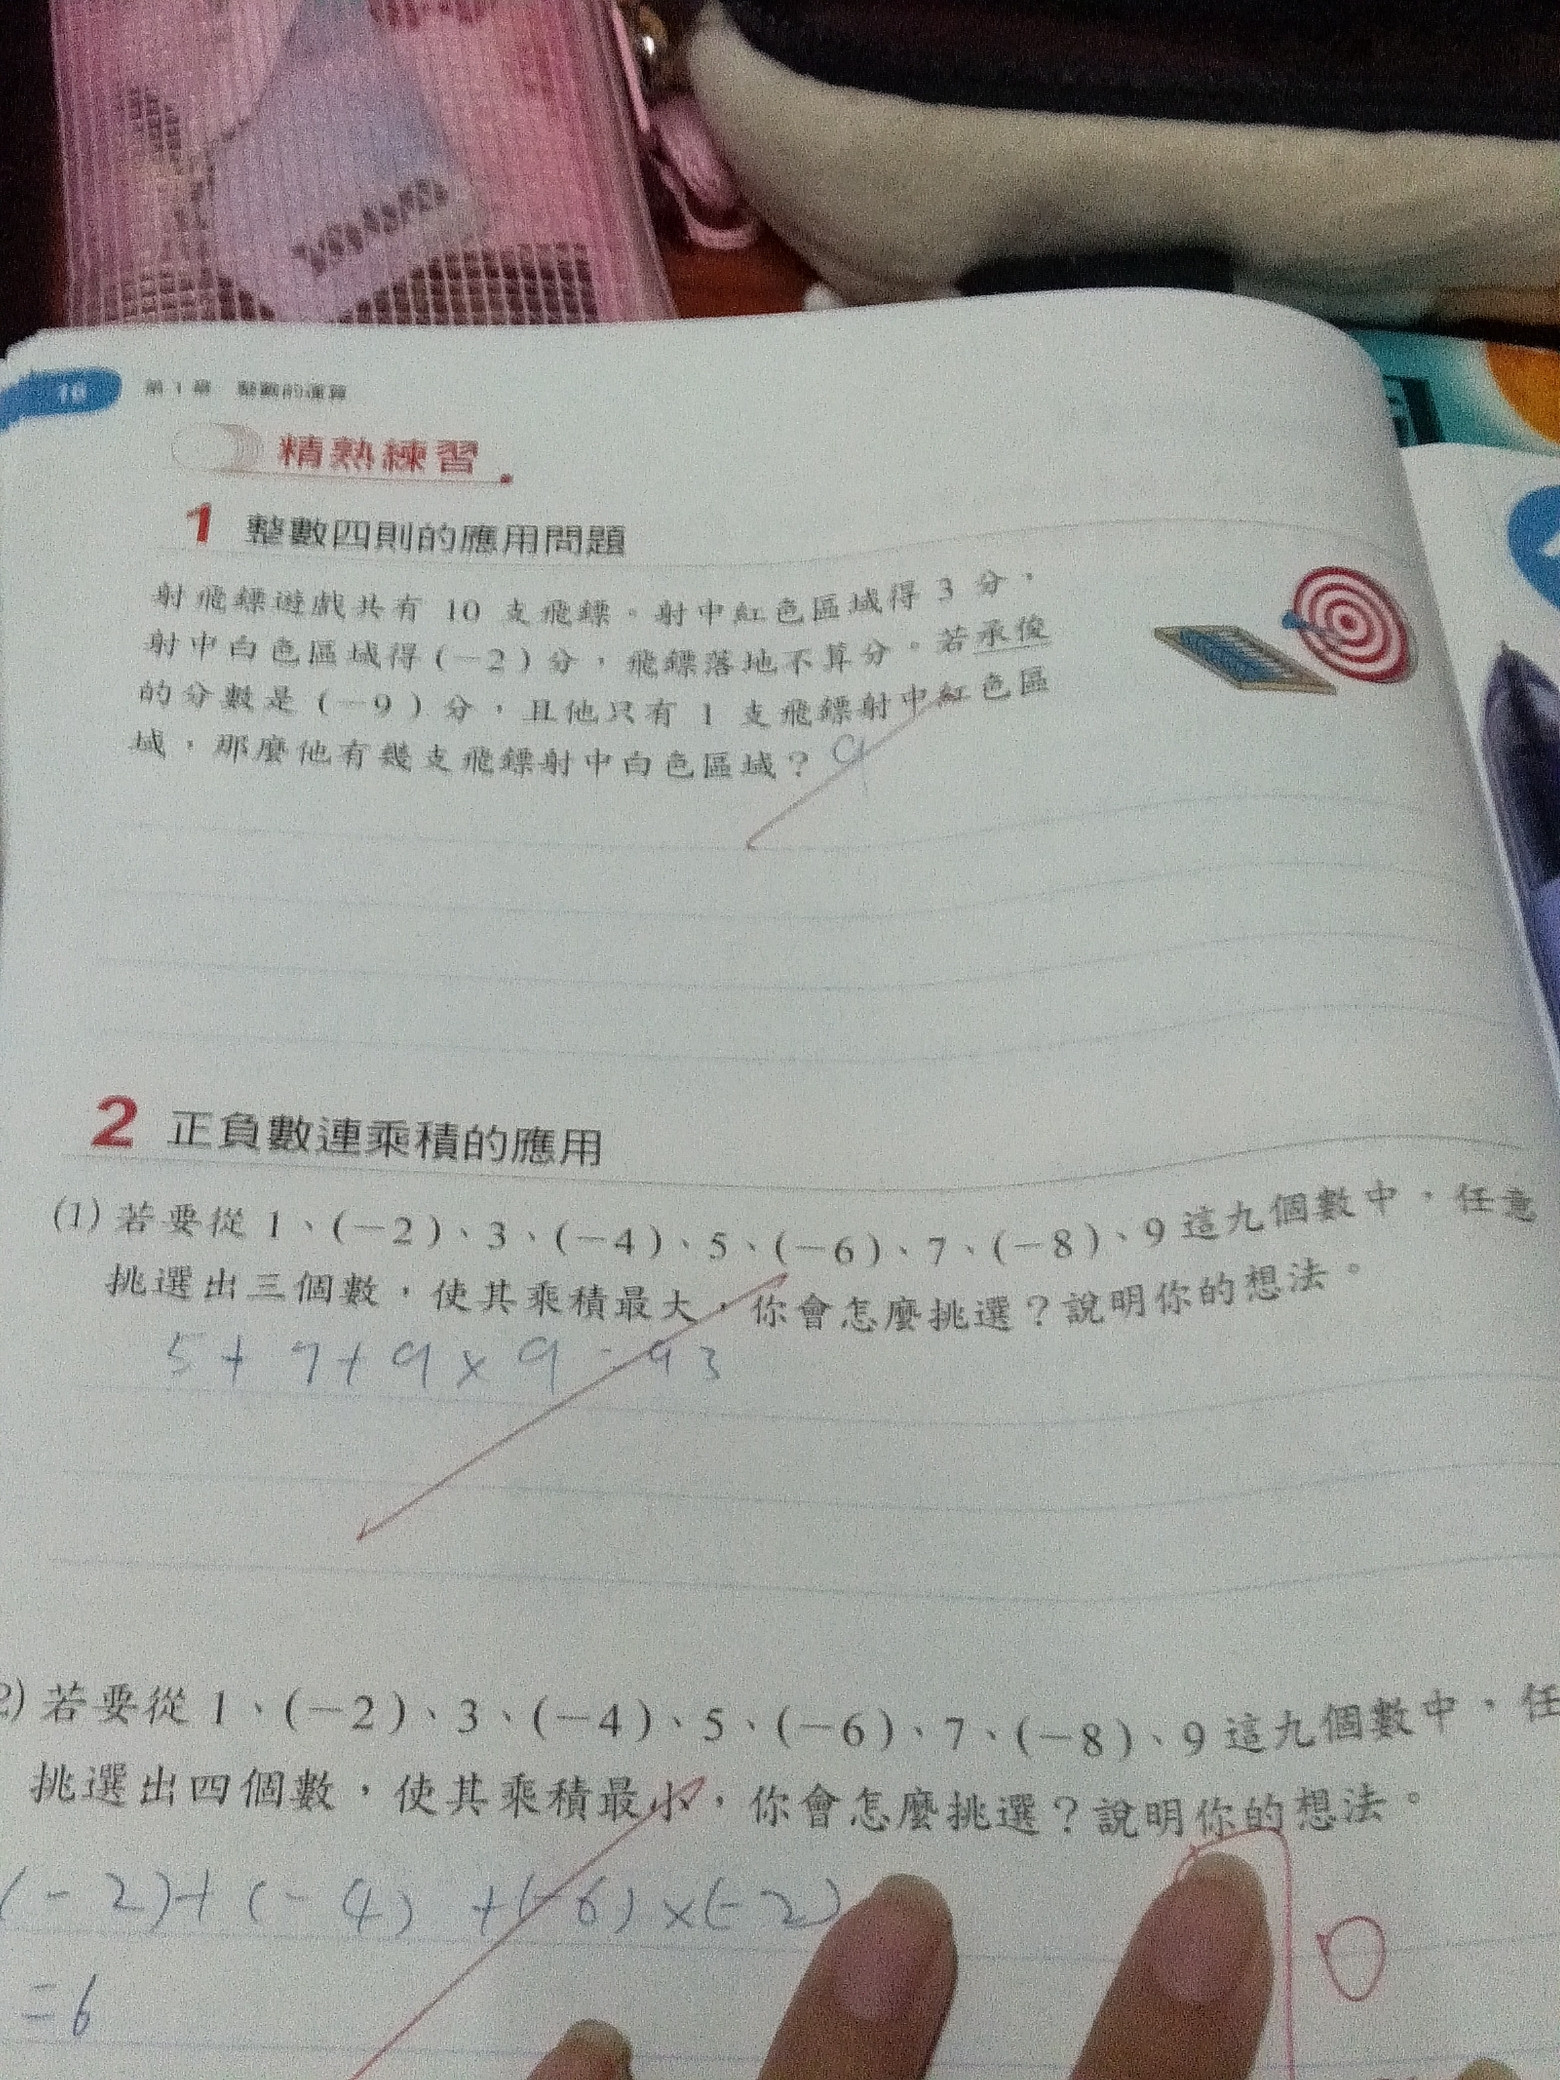 10 第1章 整數的運算
精熟練習
1 整數四則的應用問題
射飛鏢遊戲共有 10 支飛鏢。射中紅色區域得 3 分，
射中白色區域得(－2)分，飛鏢落地不算分。若承俊
的分數是(－9)分，且他只有 1 支飛鏢射中紅色區
域，那麼他有幾支飛鏢射中白色區域？ 9
2 正負數連乘積的應用
(1) 若要從 1、(－2)、3、(－4)、5、(－6)、7、(－8)、9 這九個數中，任意
挑選出三個數，使其乘積最大，你會怎麼挑選？說明你的想法。
5+7+9×9=93
2) 若要從 1、(－2)、3、(－4)、5、(－6)、7、(－8)、9 這九個數中，任
挑選出四個數，使其乘積最小，你會怎麼挑選？說明你的想法。
(-2)+(-4)+(-6)×(-2)
=6